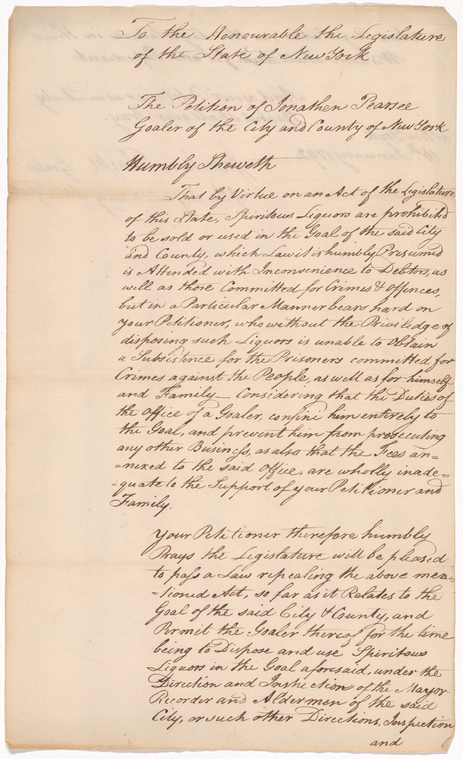 To the Honourable the Legislature
of the State of New York
The Petition of Jonathen Pearsee
Goaler of the City and County of New York
Humbly Sheweth
That by Virtue on an Act of the Legislature
of this State, Spiritous Liquors are prohibited
to be sold or used in the Goal of the said City
and County, which Law it is humbly Presumed
is Attended with Inconvenience to Debtors, as
well as those Committed for Crimes & Offences,
but in a Particular Manner bears hard on
your Petitioner, who without the Priviledge of
disposing such Liquors is unable to Obtain
a Subsistence for the Prisoners committed for
Crimes against the People, as well as for himself
and Family — Considering that the Duties of
the Office of a Goaler, confine him entirely to
the Goal, and prevent him from prosecuting
any other Business, as also that the Fees an=
=nexed to the said Office, are wholly inade=
=quate to the Support of your Petitioner and
Family.
Your Petitioner therefore humbly
Prays the Legislature will be pleased
to pass a Law repealing the above men=
=tioned Act, so far as it Relates to the
Goal of the said City & County, and
Permit the Goaler thereof for the time
being to Dispose and use Spiritous
Liquors in the Goal aforesaid, under the
Direction and Instruction of the Mayor
Recorder and Aldermen of the said
City, or such other Directions, Inspection
and